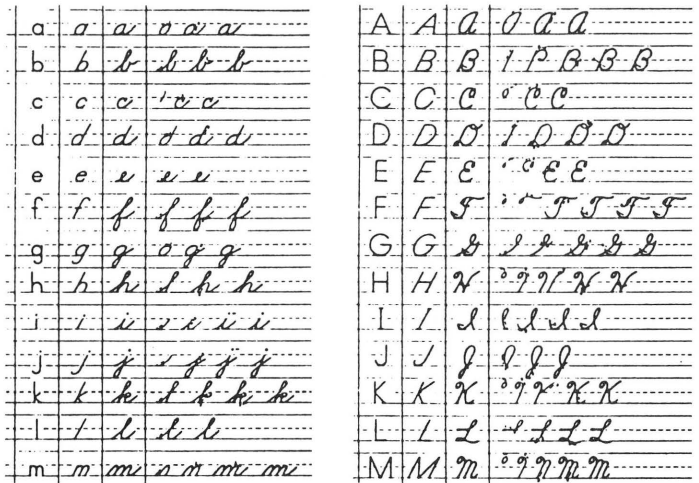 a a a a a a
b b b b b b
c c c c c c
d d d d d d
e e e e e
f f f f f f
g g g g g g
h h h h h h
i i i i i i i
j j j j j j j
k k k k k k k
l l l l l
m m m m m m m
A A A O A A
B B B I P B B B
C C C C C
D D D D D D
E E E E E
F F F T T F F
G G G G G G
H H H H H
I I I I I I I
J J J J J J
K K K K K
L L L L L L
M M M M M M